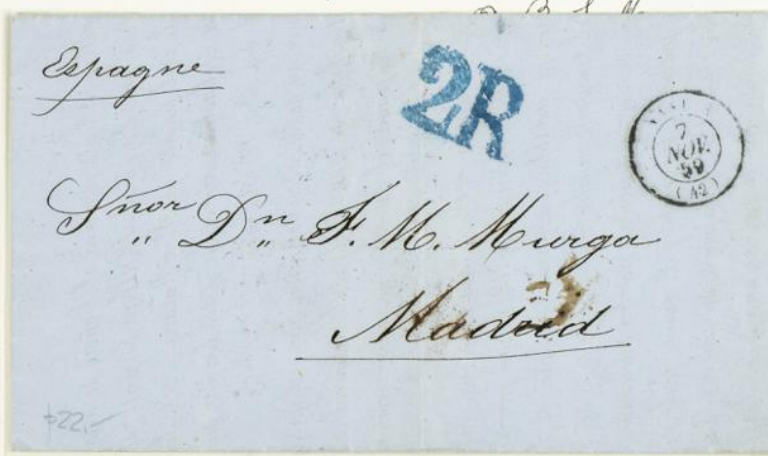 Espagne
2R
7
NOV.
59
(42)
Sñnor Dn F. M. Murga
Madrid